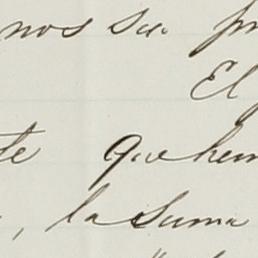 nos su
El
te que hem
, la suma